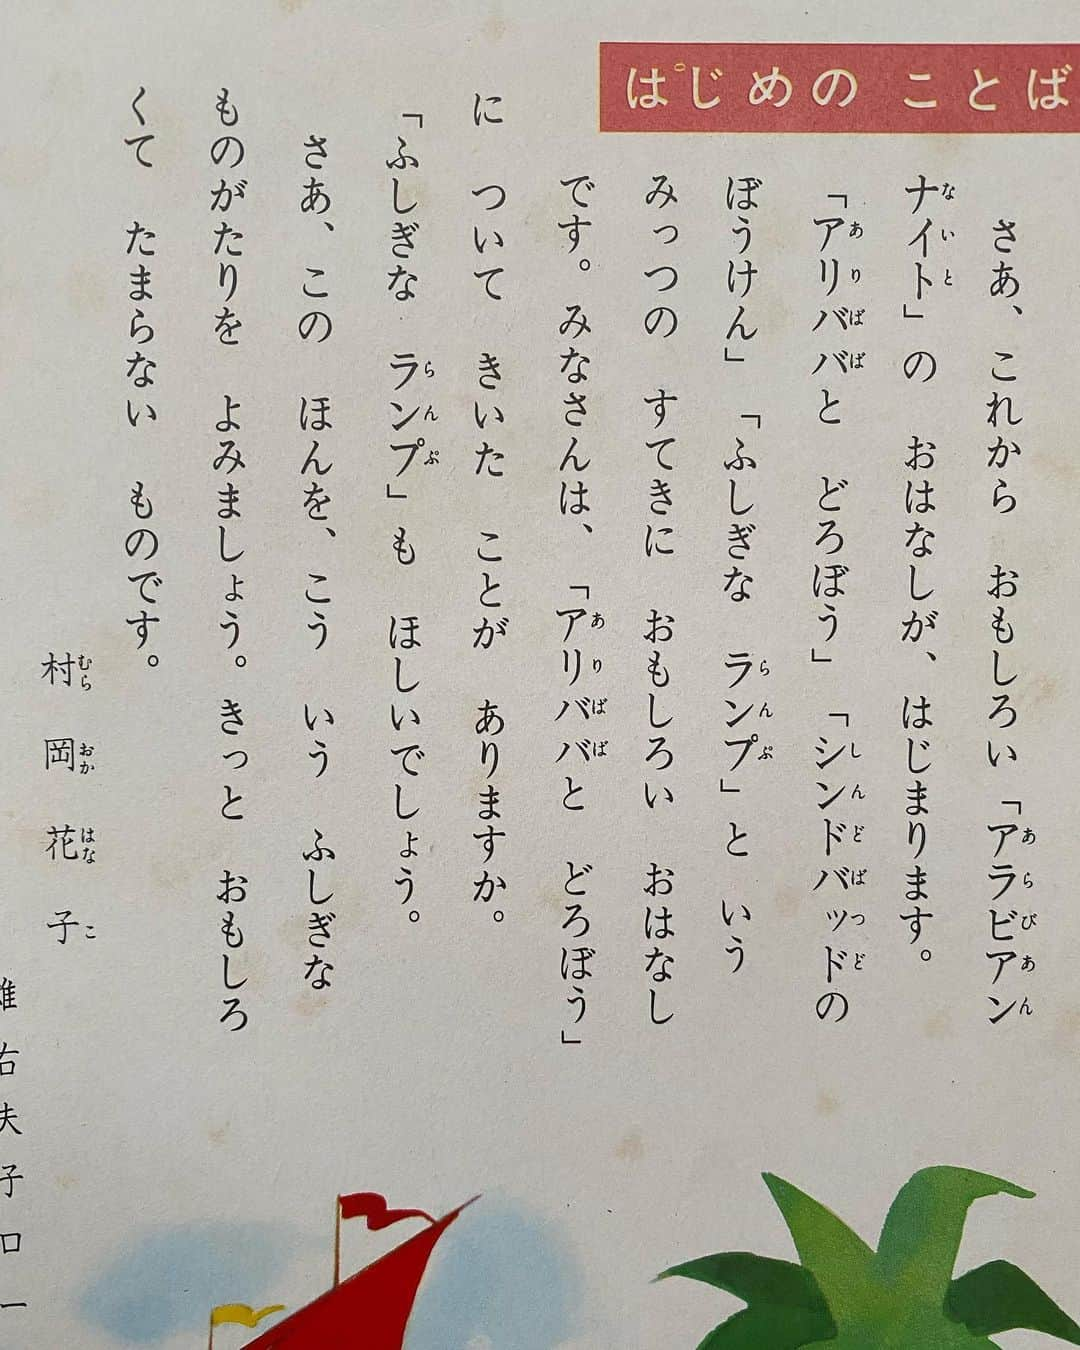 はじめの ことば
さあ、これから おもしろい 「アラビアン
ナイト」の おはなしが、はじまります。
「アリババと どろぼう」「シンドバッドの
ぼうけん」「ふしぎな ランプ」と いう
みっつの すてきに おもしろい おはなし
です。みなさんは、「アリババと どろぼう」
に ついて きいた ことが ありますか。
「ふしぎな ランプ」も ほしいでしょう。
さあ、この ほんを、こう いう ふしぎな
ものがたりを よみましょう。きっと おもしろ
くて たまらない ものです。
村岡花子
右夫子口一